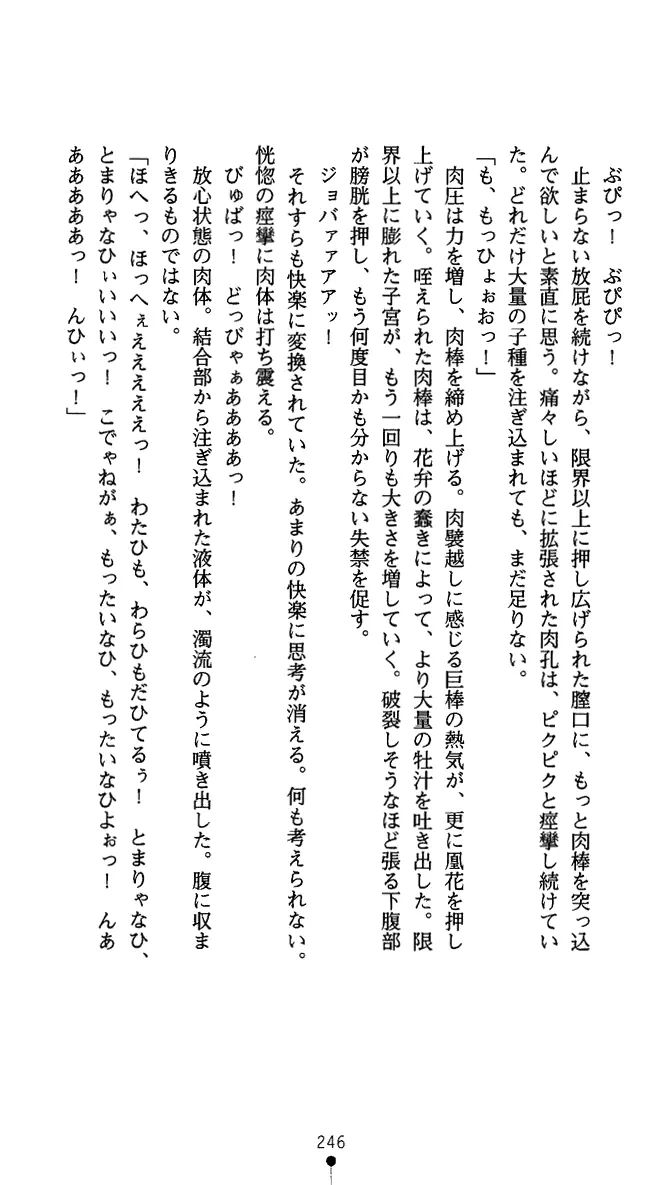 ぶぴっ！　ぶぴぴっ！
止まらない放屁を続けながら、限界以上に押し広げられた膣口に、もっと肉棒を突っ込
んで欲しいと素直に思う。痛々しいほどに拡張された肉孔は、ピクピクと痙攣し続けてい
た。どれだけ大量の子種を注ぎ込まれても、まだ足りない。
「も、もっひょぉおっ！」
肉圧は力を増し、肉棒を締め上げる。肉襞越しに感じる巨棒の熱気が、更に凰花を押し
上げていく。咥えられた肉棒は、花弁の蠢きによって、より大量の牡汁を吐き出した。限
界以上に膨れた子宮が、もう一回りも大きさを増していく。破裂しそうなほど張る下腹部
が膀胱を押し、もう何度目かも分からない失禁を促す。
ジョバァァアアッ！
それすらも快楽に変換されていた。あまりの快楽に思考が消える。何も考えられない。
恍惚の痙攣に肉体は打ち震える。
びゅばっ！　どっびゃぁああああっ！
放心状態の肉体。結合部から注ぎ込まれた液体が、濁流のように噴き出した。腹に収ま
りきるものではない。
「ほへっ、ほっへぇえええええっ！　わたひも、わらひもだひてるぅ！　とまりゃなひ、
とまりゃなひぃいいいっ！　こでゃねがぁ、もったいなひ、もったいなひよぉっ！　んあ
ああああああっ！　んひぃっ！」
246